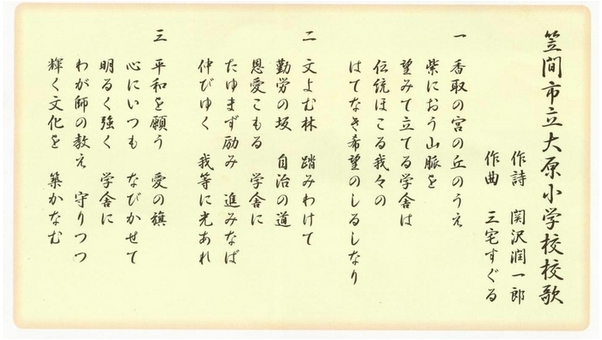 笠間市立大原小学校校歌
作詩 関沢潤一郎
作曲 三宅すぐる
一 香取の宮の丘のうえ
紫におう山脈を
望みて立てる学舎は
伝統ほこる我々の
はてなき希望のしるしなり
二 文よむ林 踏みわけて
勤労の坂 自治の道
恩愛こもる 学舎に
たゆまず励み 進みなば
伸びゆく 我等に光あれ
三 平和を願う 愛の旗
心にいつも なびかせて
明るく強く 学舎に
わが師の教え 守りつつ
輝く文化を 築かなむ